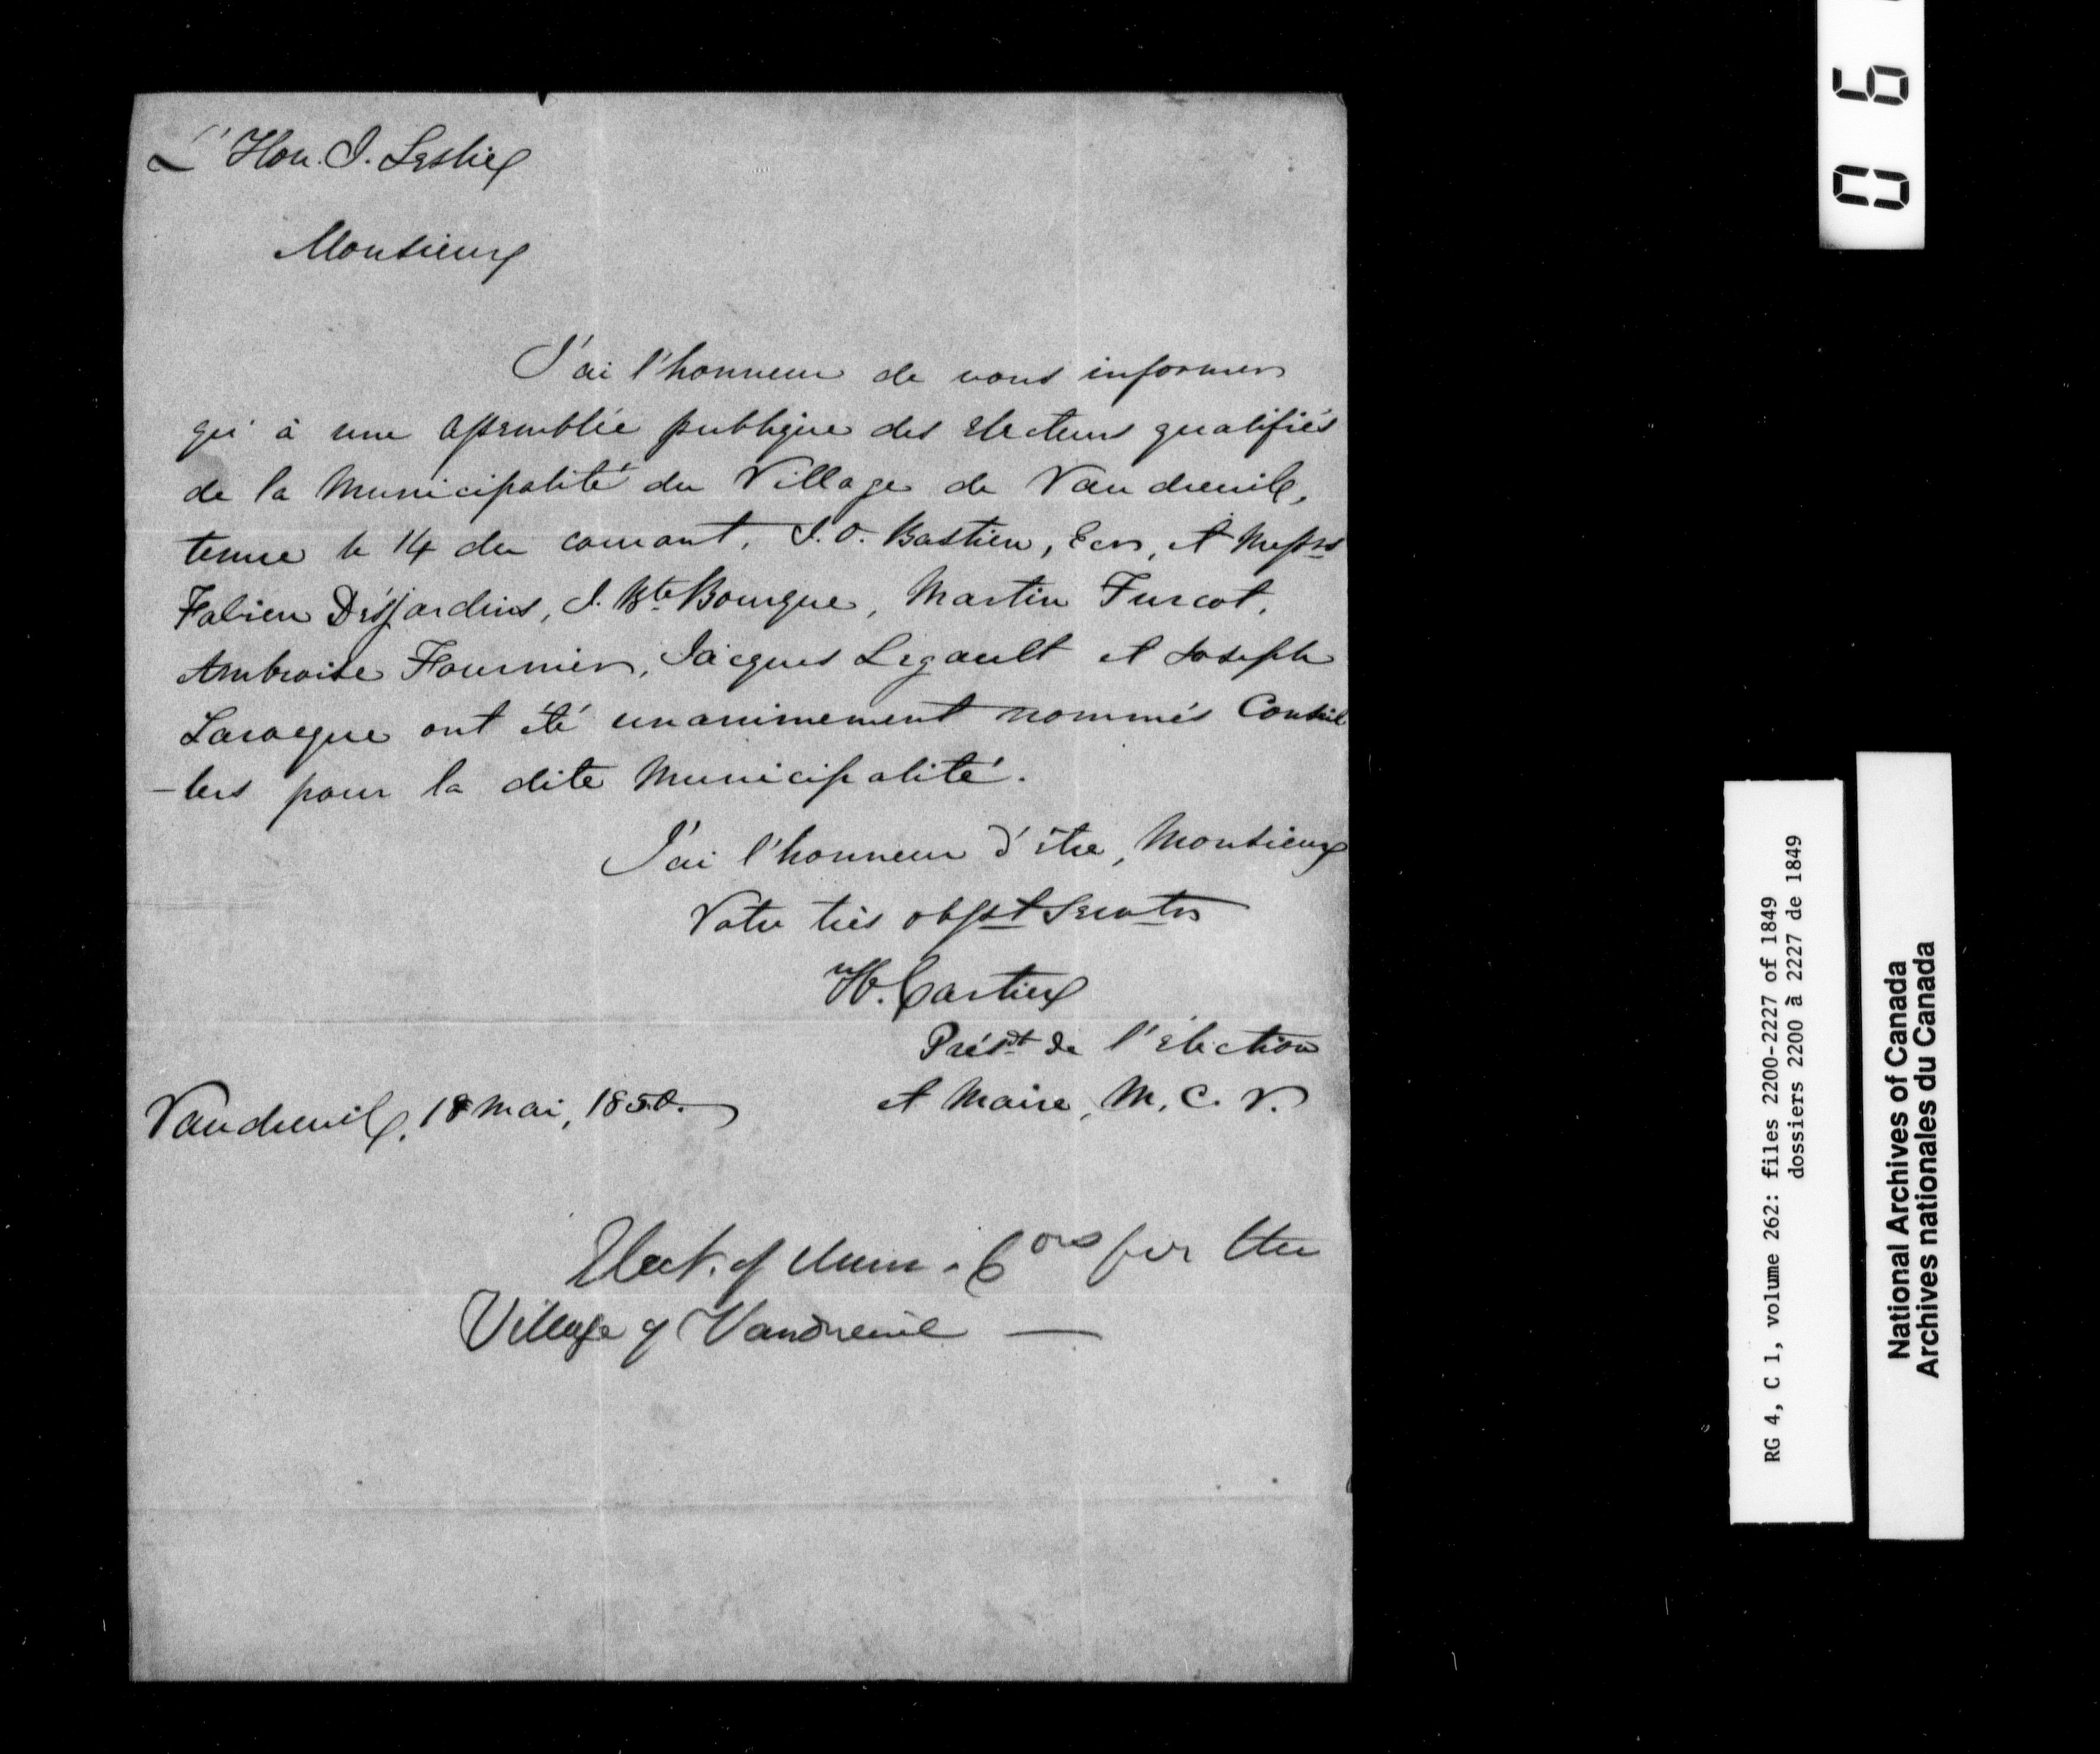 L'Hon. J. Leslie
Monsieur
J'ai l'honneur de vous informer
qu'à une assemblée publique des electeurs qualifiés
de la Municipalité du Village de Vaudreuil,
tenue le 14 du courant, J. O. Bastien, Ecr, et Messrs
Fabien Désjardins, J. Bte Bourque, Martin Turcot,
Ambroise Fournier, Jacques Legault et Joseph
Larocque ont été unanimement nommés Conseil
-lers pour la dite Municipalité.
J'ai l'honneur d'être, Monsieur
Votre très obsst Servtr
H. Cartier
Présdt de l'élection
et Maire, M. C. V.
Vaudreuil, 18 Mai, 1850.
Elect. of Mun. Cors for the
Village of Vaudreuil —
06
RG 4, C 1, volume 262: files 2200-2227 of 1849
dossiers 2200 à 2227 de 1849
National Archives of Canada
Archives nationales du Canada